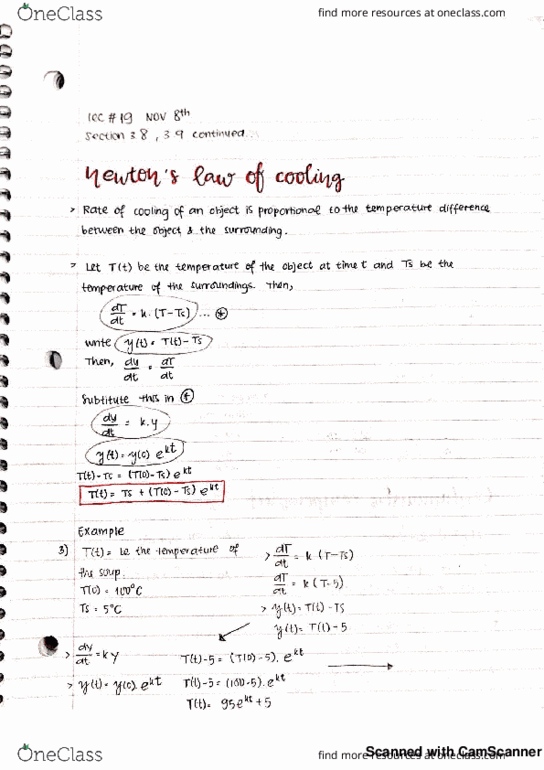 OneClass
find more resources at oneclass.com
lec #19 NOV 8th
Section 3.8, 3.9 continued...
Newton's law of cooling
> Rate of cooling of an object is proportional to the temperature difference
between the object & the surrounding.
> Let T(t) be the temperature of the object at time t and Ts be the
temperature of the surroundings. Then,
dT/dt = k.(T-Ts) ... *
write y(t) = T(t) - Ts
Then, dy/dt = dT/dt
Subtitute this in *
dy/dt = k.y
y(t) = y(0) e^kt
T(t) - Ts = (T(0) - Ts) e^kt
T(t) = Ts + (T(0) - Ts) e^kt
Example
3) T(t) = be the temperature of
the soup.
T(0) = 100°C
Ts = 5°C
> dT/dt = k (T-Ts)
dT/dt = k (T-5)
> y(t) = T(t) - Ts
y(t) = T(t) - 5
> dy/dt = ky
> y(t) = y(0). e^kt
T(t) - 5 = (T(0) - 5). e^kt
T(t) - 5 = (100 - 5). e^kt
T(t) = 95e^kt + 5
OneClass
find more resources at oneclass.com
Scanned with CamScanner